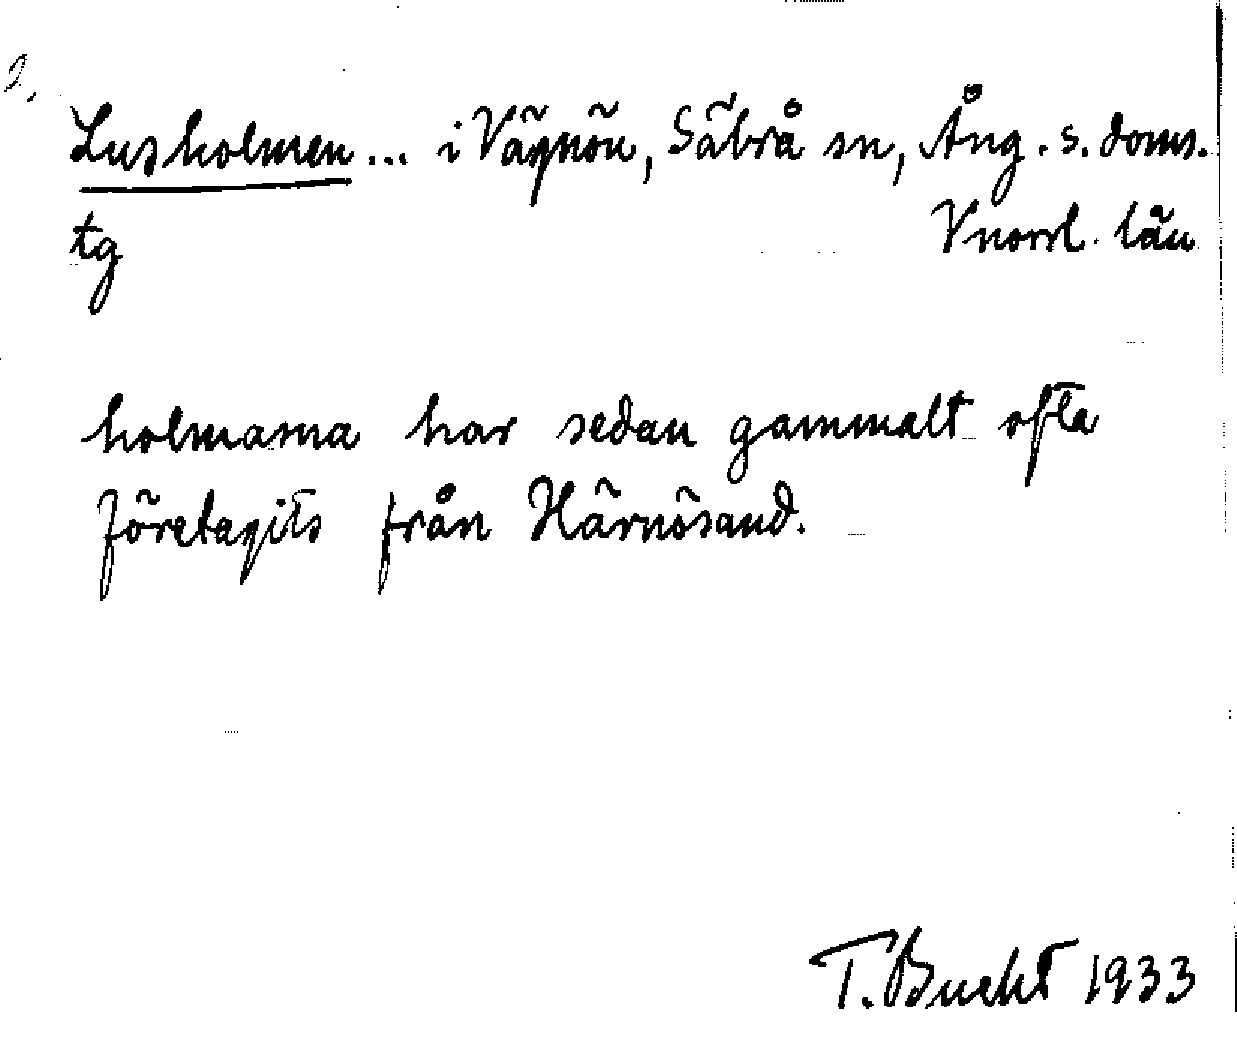 2.
Lusholmen ... i Vägnön, Säbrå sn, Ång. s. doms.
tg Vnorrl. län
holmarna har sedan gammalt ofta
företagits från Härnösand.
T. Bucht 1933